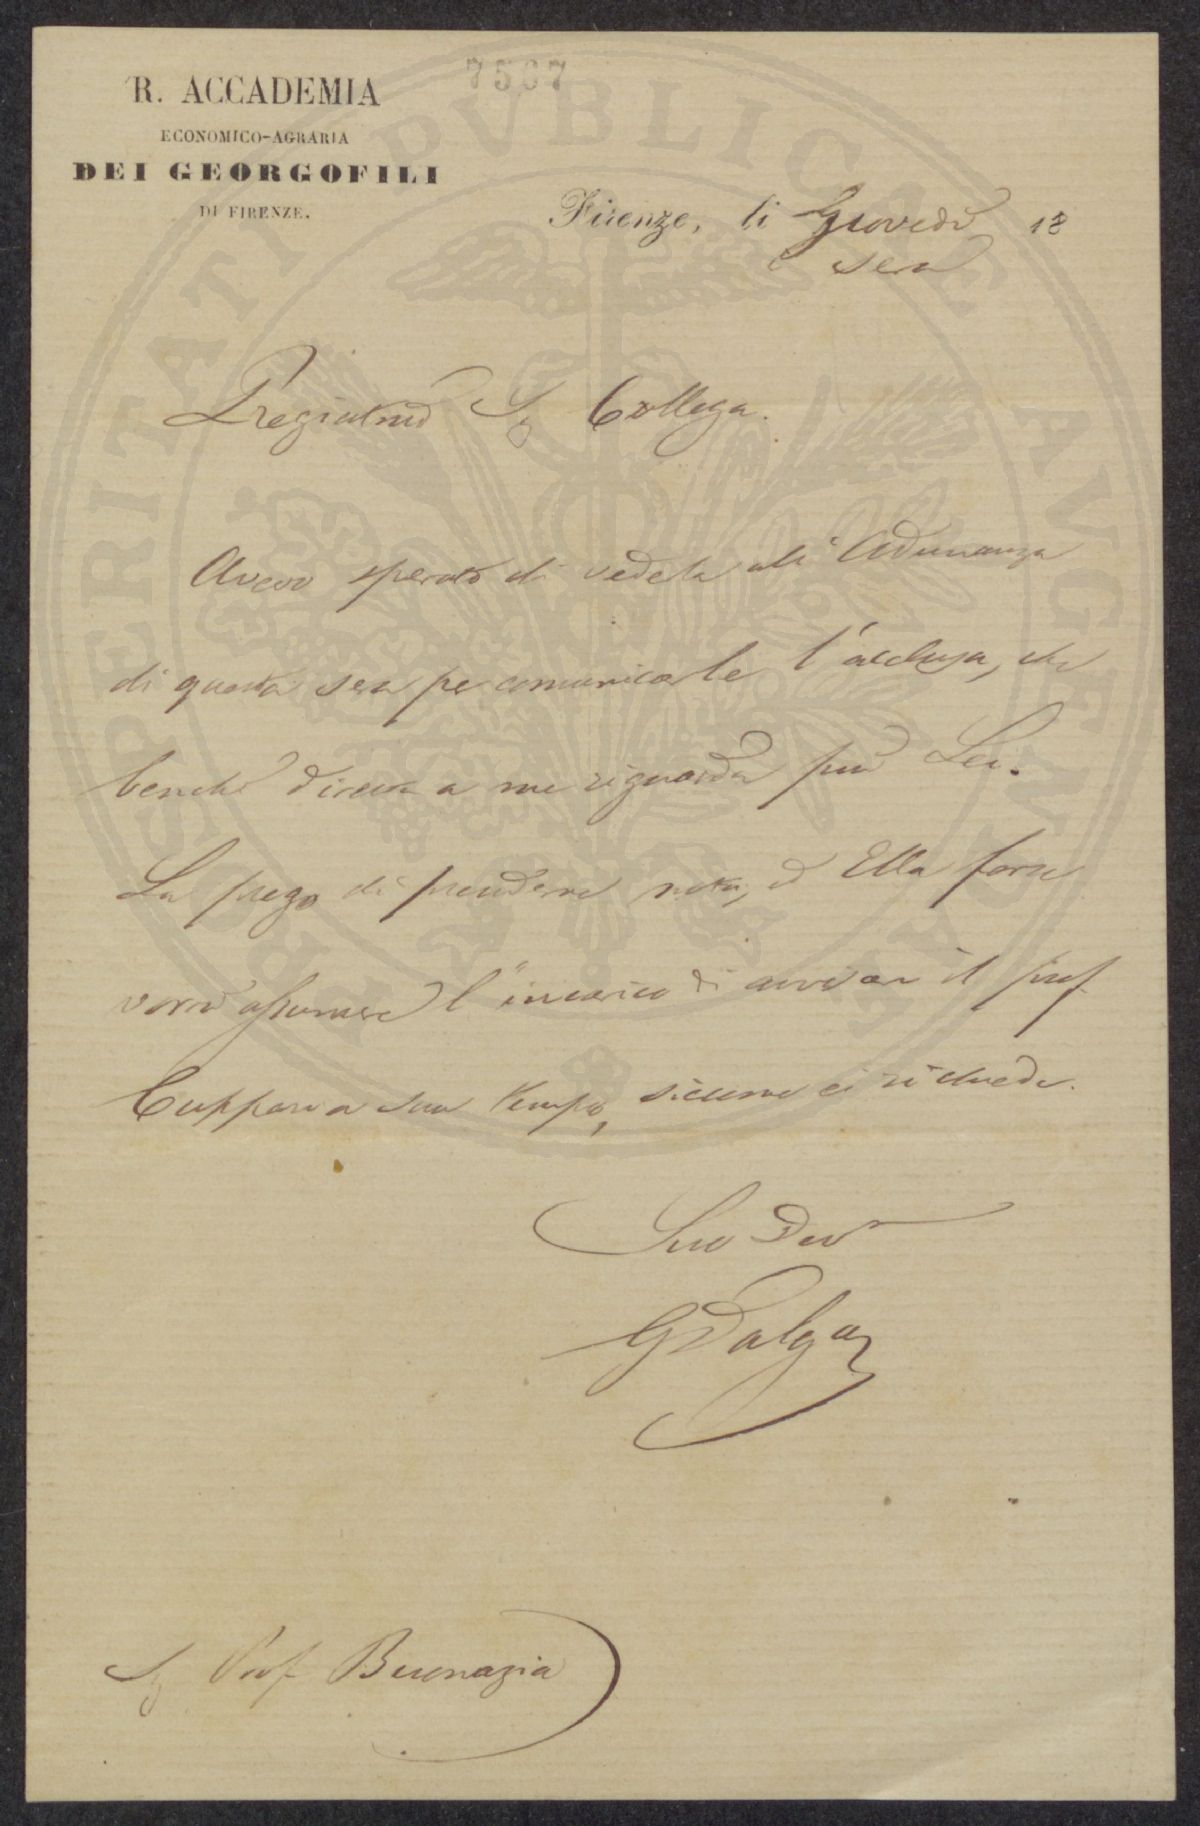 7567
R. ACCADEMIA
ECONOMICO-AGRARIA
DEI GEORGOFILI
DI FIRENZE.
Firenze, li Giovedì 18
sera
Pregiatmo Sig Collega.
Avevo sperato di vederla all'Adunanza
di questa sera per comunicarle l'acclusa, che
benchè diretta a me riguarda più Lei.
La prego di prenderne nota, ed Ella forse
vorrà assumere l'incarico di avvisar il prof.
Cuppari a suo tempo, siccome ci richiede.
Suo Dev
G Dalga
Sig Prof Buonazia
PROSPERITATI PUBLICAE AUGENDAE